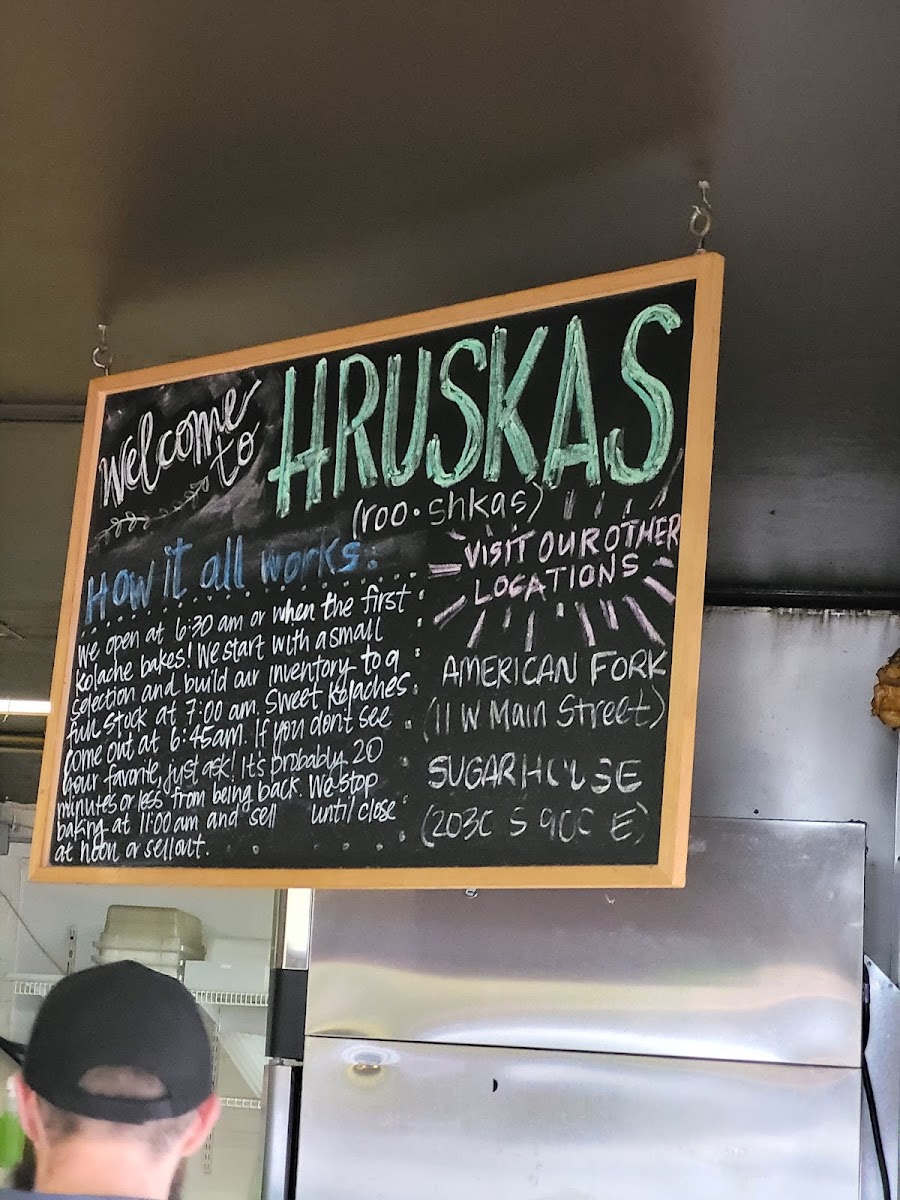 Welcome
to
HRUSKAS
(roo•shkas)
How it all works:
We open at 6:30 am or when the first
Kolache bakes! We start with a small
selection and build our inventory to a
full stock at 7:00 am. Sweet Kolaches
come out at 6:45am. If you don't see
your favorite, just ask! It's probably 20
minutes or less from being back. We stop
baking at 11:00 am and sell until close
at noon or sellout.
VISIT OUR OTHER
LOCATIONS
AMERICAN FORK
(11 W Main Street)
SUGARHOUSE
(2030 S 900 E)